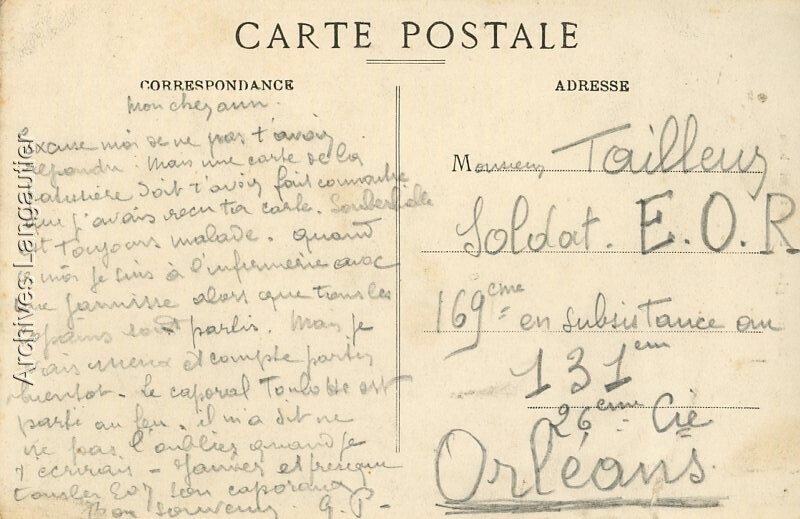 CARTE POSTALE
CORRESPONDANCE
Mon cher ami.
Excuse moi de ne pas t'avoir
répondu. Mais une carte de la
doit t'avoir fait connaitre
que j'avais recu ta carte. Souberbielle
est toujours malade. quand
à moi je suis à l'infirmerie avec
une jaunisse alors que tous les
copains sont partis. Mais je
vais mieux et compte partir
bientot. Le caporal est
parti au feu. il m'a dit de
ne pas l'oublier quand je
t'ecrirais - Janvier et presque
tous les EOR son caporaux
Bon souvenir G. P.
ADRESSE
Monsieur Tailleur
Soldat. E.O.R
169eme en subsistance au
131em
26eme Cie
Orléans
Archives Langaullier